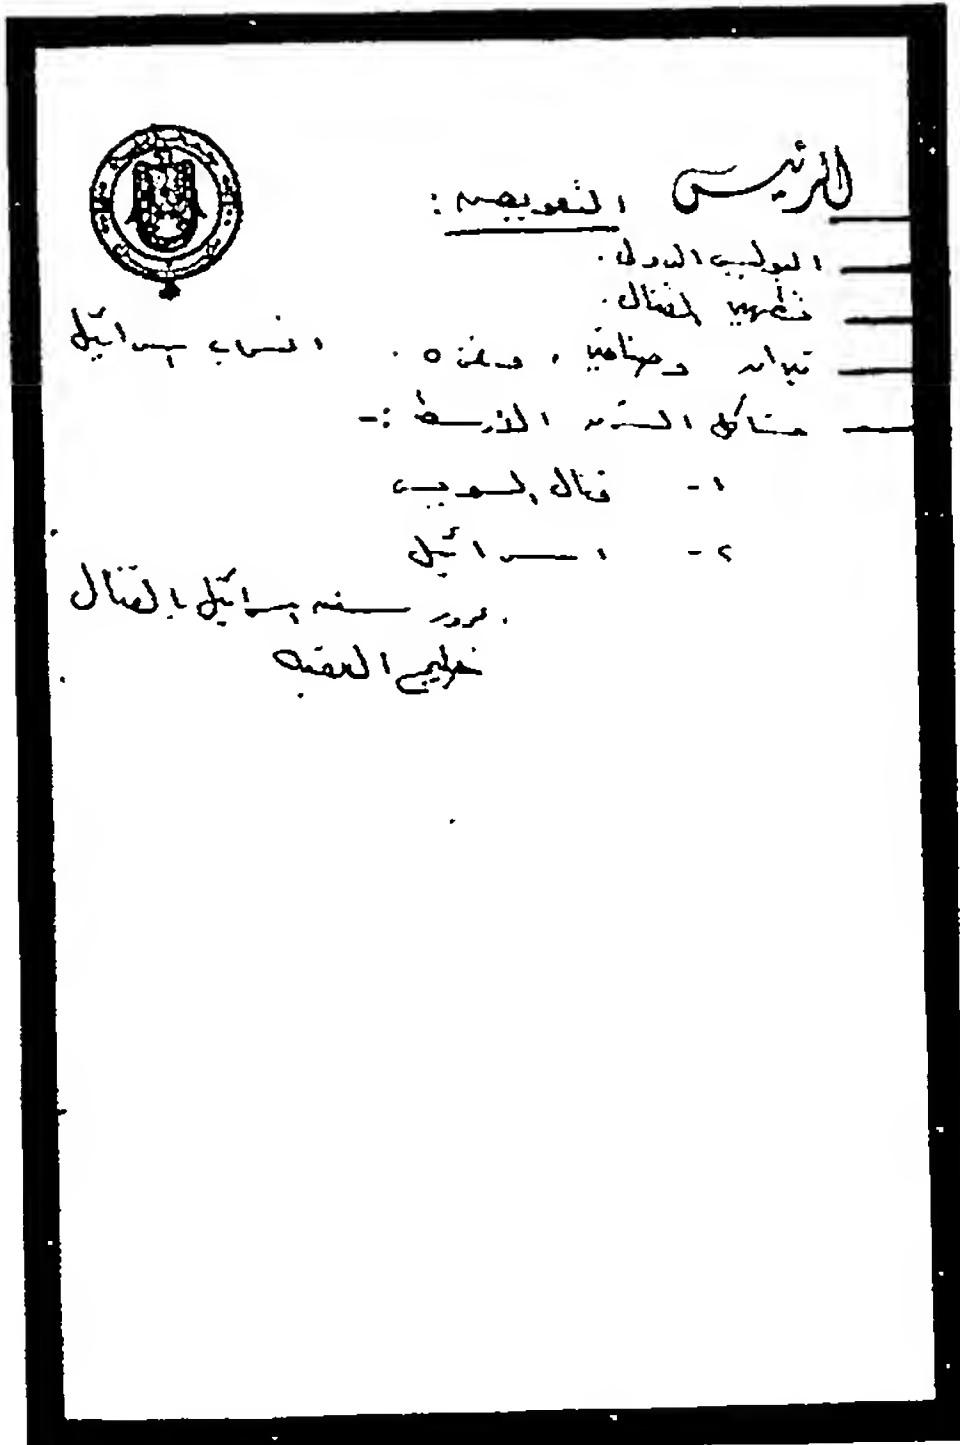 الرئيس
التعويض :
البوليس الدولى .
تطهير القنال .
تيران وصنافير ، وغزه . انسحاب إسرائيل
مشاكل الشرق الأوسط :-
١- قنال السويس
٢- اسرائيل
. مرور سفن إسرائيل بالقنال
خليج العقبه